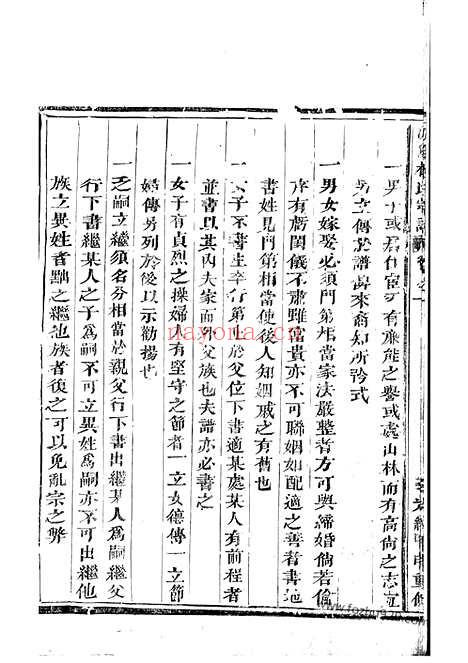 一男子或居仕宦而有廉能之譽或處山林而有高尚之志立
另立傳於譜與來裔知所矜式
一男女嫁娶必須門第相當家法嚴整者方可與締婚倘若倫
序有虧閨儀不肅雖富貴亦不可聯姻如配適之善者書地
書姓見門第相當使後人知姻戚之有舊也
一女子不書生卒行第止於父位下書適某處某人有前程者
並書以其內夫家而外父族也夫譜亦必書之
一女子有貞烈之操婦有堅守之節者一立女德傳一立節
婦傳另列於後以示勸揚也
一乏嗣立繼須名分相當於親父行下書出繼某人爲嗣繼父
行下書繼某人之子爲嗣不可立異姓爲嗣亦不可出繼他
族立異姓者黜之繼他族者復之可以免亂宗之弊